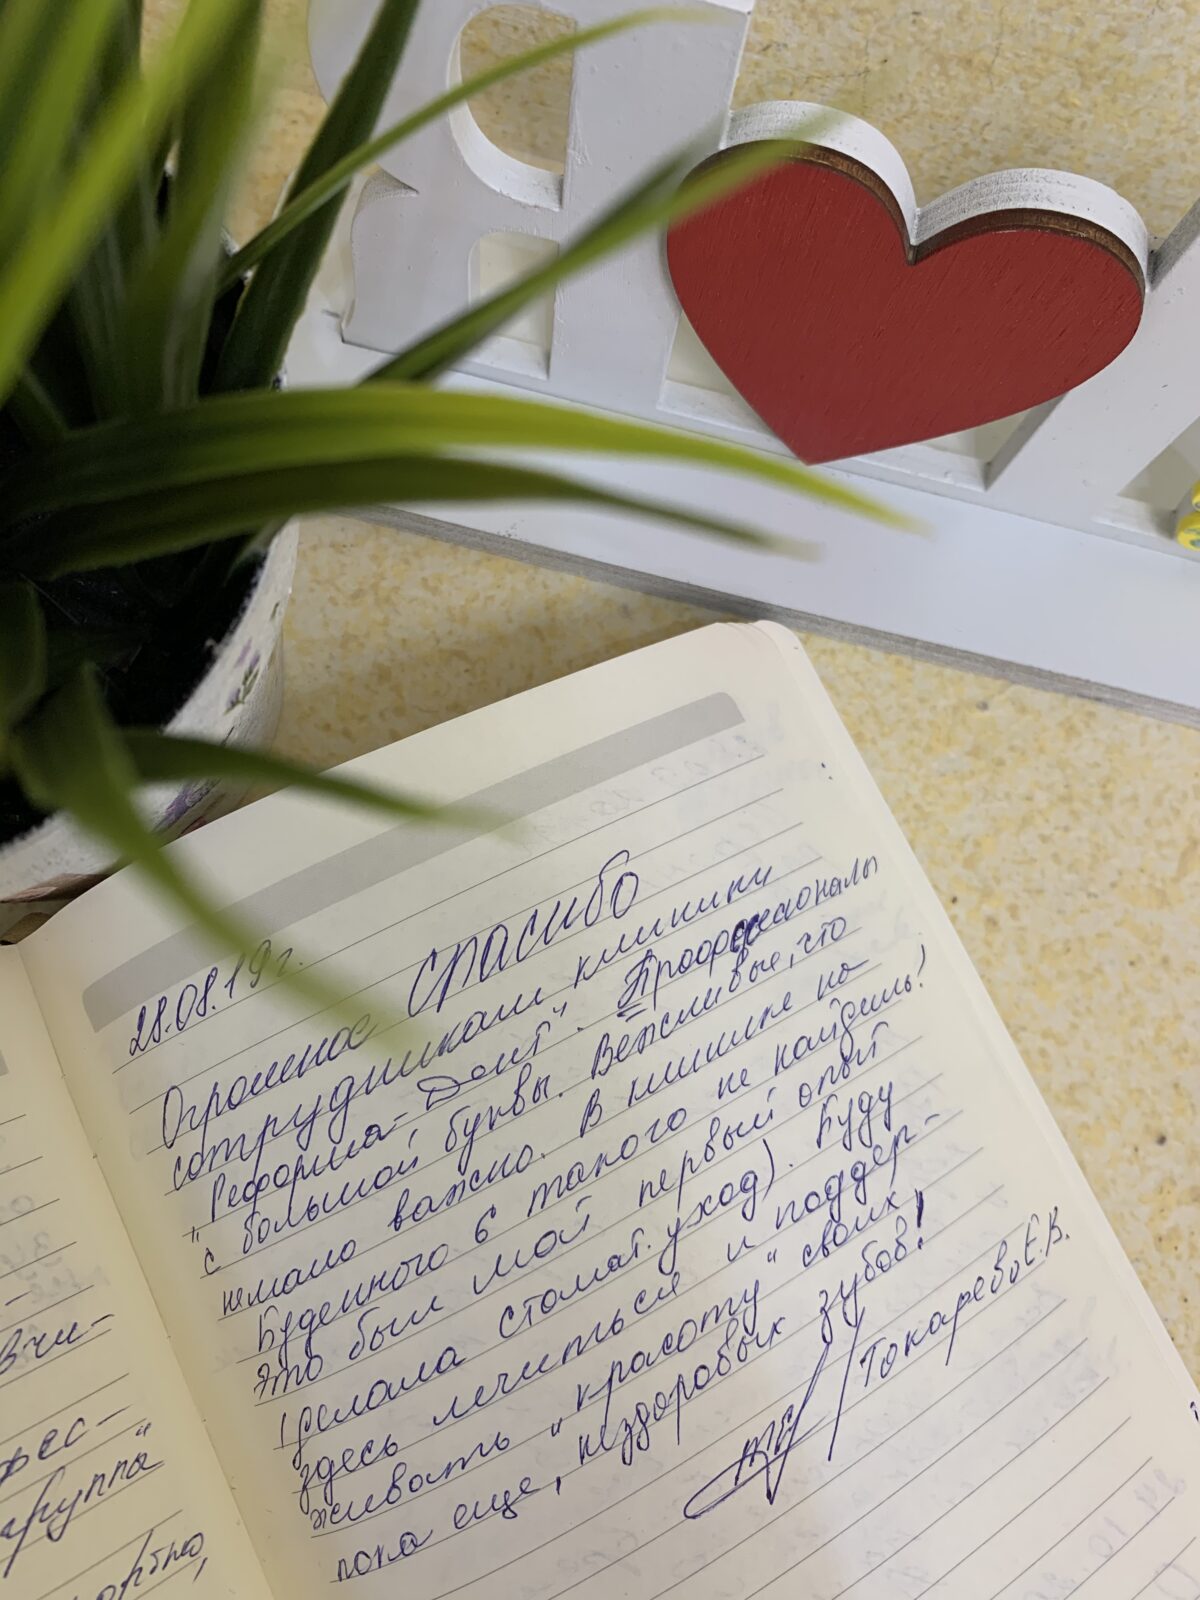 Я
28.08.19г.
Огромное СПАСИБО
сотрудникам клиники
"Реформа-Дент". Профессионалы
с большой буквы. Вежливые, что
немало важно. В клинике на
Буденного 6 такого не найдешь!
Это был мой первый опыт
(делала стомат. уход). Буду
здесь лечиться и поддер-
живать "красоту" своих,
пока еще, нездоровых зубов!
Токарева Е.В.
вчи-
фес-
группа"